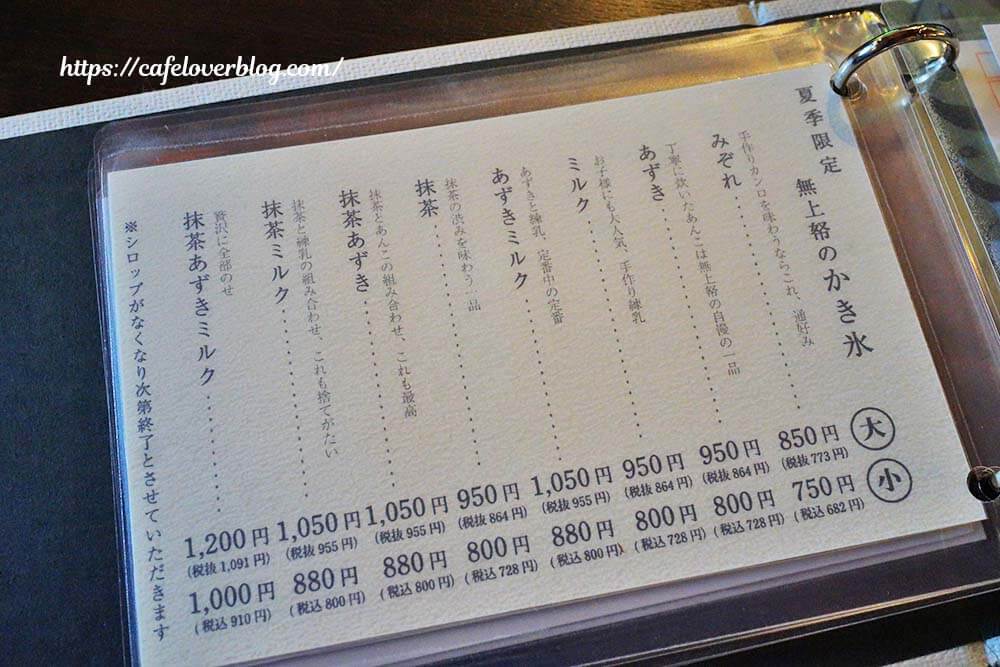 https://cafeloverblog.com/
夏季限定 無上帑のかき氷
大
小
手作りカンロを味わうならこれ、通好み
みぞれ
850円
(税抜 773円)
750円
(税込 682円)
丁寧に炊いたあんこは無上帑の自慢の一品
あずき
950円
(税抜 864円)
800円
(税込 728円)
お子様にも大人気、手作り練乳
ミルク
950円
(税抜 864円)
800円
(税込 728円)
あずきと練乳、定番中の定番
あずきミルク
1,050円
(税抜 955円)
880円
(税込 800円)
抹茶の渋みを味わう一品
抹茶
950円
(税抜 864円)
800円
(税込 728円)
抹茶とあんこの組み合わせ、これも最高
抹茶あずき
1,050円
(税抜 955円)
880円
(税込 800円)
抹茶と練乳の組み合わせ、これも捨てがたい
抹茶ミルク
1,050円
(税抜 955円)
880円
(税込 800円)
贅沢に全部のせ
抹茶あずきミルク
1,200円
(税抜 1,091円)
1,000円
(税込 910円)
※シロップがなくなり次第終了とさせていただきます